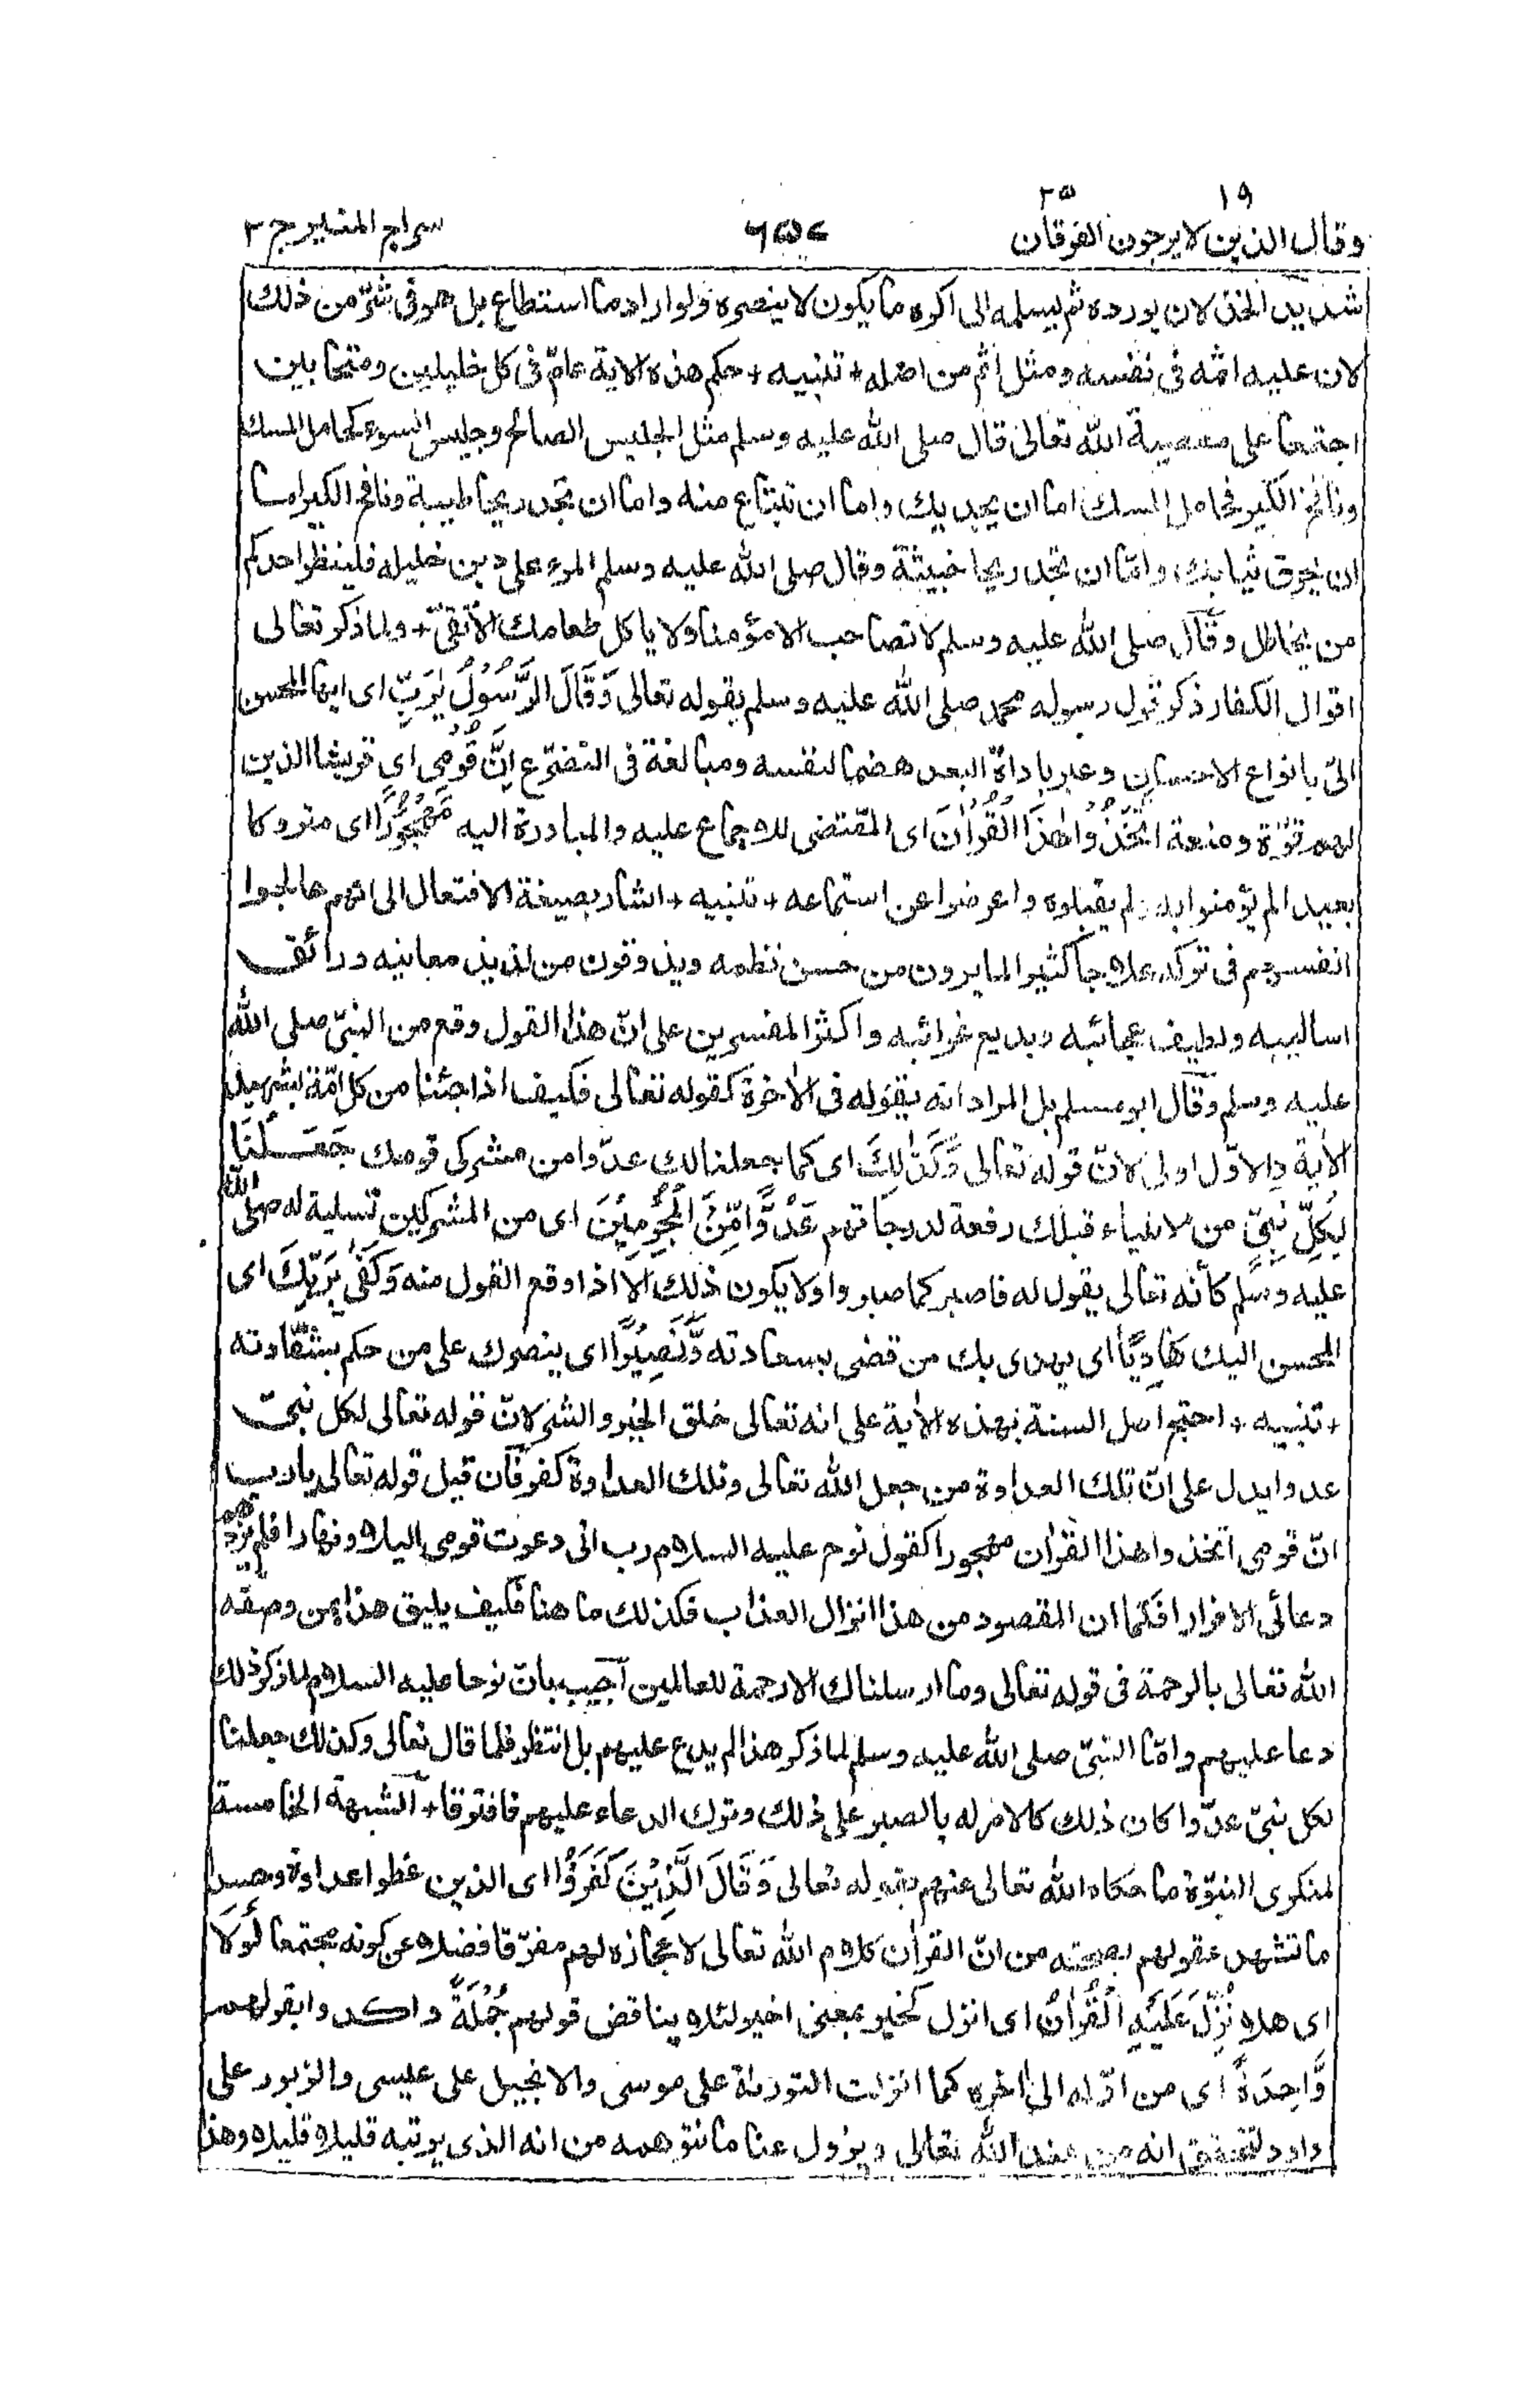 ١٩ ٢٥
وقال الذين لا يرجون الفرقان ٦٥٧ سراج المنير ج ٢
شديد الخذلان يورده ثم يسلمه الى اكره ما يكون لا ينصره ولو اراد ما استطاع بل هو فى شرّ من ذلك
لان عليه اثمه فى نفسه ومثل اثم من اضله + تنبيه + حكم هذه الاية عامّ فى كل خليلين ومتحابين
اجتمعا على معصية الله تعالى قال صلى الله عليه وسلم مثل الجليس الصالح وجليس السوء كحامل المسك
ونافخ الكير فحامل المسك اما ان يحذيك واما ان تبتاع منه واما ان تجد ريحا طيبة ونافخ الكير اما
ان يحرق ثيابك وامّا ان تجد ريحا خبيثة وقال صلى الله عليه وسلم المرء على دين خليله فلينظر احدكم
من يخالل وقال صلى الله عليه وسلم لا تصاحب الا مؤمنا ولا ياكل طعامك الا تقىّ + ولما ذكر تعالى
اقوال الكفار ذكر قول رسوله محمد صلى الله عليه وسلم بقوله تعالى وَقَالَ الرَّسُوْلُ يٰرَبِّ اى ايها المحسن
الىّ بانواع الاحسان وعبر باداة البعد هضما لنفسه ومبالغة فى التضرّع اِنَّ قَوْمِى اى قريشا الذين
لهم قوّة ومنعة اتَّخَذُوْا هٰذَا الْقُرْاٰنَ اى المقتضى للاجماع عليه والمبادرة اليه مَهْجُوْرًا اى متروكا
بعيدا لم يؤمنوا به ولم يقبلوه واعرضوا عن استماعه + تنبيه + اشار بصيغة الافتعال الى انهم عالجوا
انفسهم فى تركه علاجا كثيرا لما يرون من حسن نظمه ويذوقون من لذيذ معانيه ورائق
اساليبه ولطيف عجائبه وبديع غرائبه واكثر المفسرين على انّ هذا القول وقع من النبىّ صلى الله
عليه وسلم وقال ابو مسلم بل المراد انه يقوله فى الاٰخرة كقوله تعالى فكيف اذا جئنا من كل امّة بشهيد
الاٰية والاوّل اولى لانّ قوله تعالى وَكَذٰلِكَ اى كما جعلنا لك عدوّا من مشركى قومك جَعَلْنَا
لِكُلِّ نَبِىٍّ من الانبياء قبلك رفعة لدرجاتهم عَدُوًّا مِّنَ الْمُجْرِمِيْنَ اى من المشركين تسلية له صلى الله
عليه وسلم كأنه تعالى يقول له فاصبر كما صبروا ولا يكون ذلك الّا اذا وقع القول منه وَكَفٰى بِرَبِّكَ اى
المحسن اليك هَادِيًا اى يهدى بك من قضى بسعادته وَّنَصِيْرًا اى ينصرك على من حكم بشقاوته
+ تنبيه + احتج اهل السنة بهذه الاٰية على انه تعالى خلق الخير والشر لانّ قوله تعالى لكل نبىّ
عدوا يدل على انّ تلك العداوة من جعل الله تعالى وتلك العداوة كفر فان قيل قوله تعالى يا رب
انّ قومى اتخذوا هذا القراٰن مهجورا كقول نوح عليه السلام رب انى دعوت قومى ليلا ونهارا فلم يزدهم
دعائى الا فرارا فكما ان المقصود من هذا انزال العذاب فكذلك ما هنا فكيف يليق هذا بمن وصفه
الله تعالى بالرحمة فى قوله تعالى وما ارسلناك الا رحمة للعالمين اجيب بانّ نوحا عليه السلام لما ذكر ذلك
دعا عليهم وامّا النبىّ صلى الله عليه وسلم لما ذكر هذا لم يدع عليهم بل انتظر فلما قال تعالى وكذلك جعلنا
لكل نبىّ عدوّا كان ذلك كالامر له بالصبر على ذلك وترك الدعاء عليهم فافترقا + الشبهة الخامسة
لمنكرى النبوّة ما حكاه الله تعالى عنهم بقوله تعالى وَقَالَ الَّذِيْنَ كَفَرُوْا اى الذين غطوا عداوة وحسدا
ما تشهد عقولهم بصحته من انّ القراٰن كلام الله تعالى لاعجازه لهم مفرّقا فضلا عن كونه مجتمعا لَوْلَا
اى هلا نُزِّلَ عَلَيْهِ الْقُرْاٰنُ اى انزل كخبر بمعنى اخبر لئلا يناقض قولهم جُمْلَةً واكدوا بقولهم
وَّاحِدَةً اى من اوّله الى اٰخره كما انزلت التورٰاة على موسى والانجيل على عيسى والزبور على
داود لتحقق انه من عند الله تعالى ويزول عنا ما نتوهمه من انه الذى يرتبه قليلا قليلا وهذا